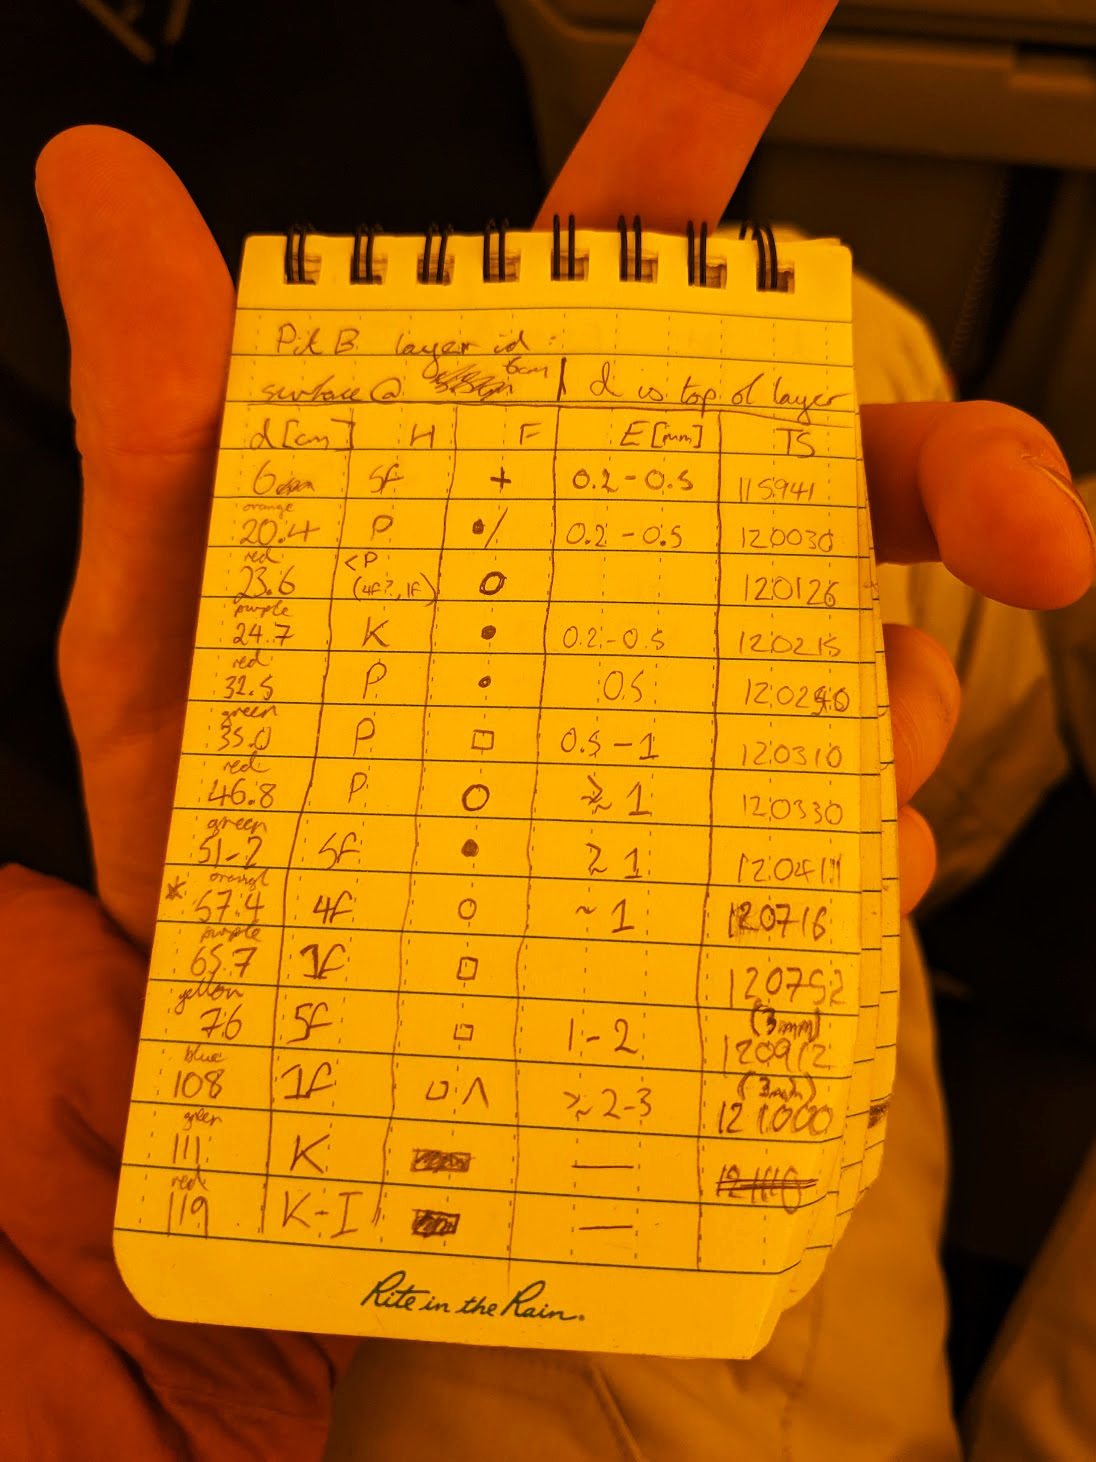 Pit B layer id :
surface @ 6cm | d is top of layer
d [cm] H F E [mm] TS
6 5f + 0.2 - 0.5 115941
orange
20.4 P ● / 0.2 - 0.5 120030
red
23.6 <P (4f?, 1f) O 120126
purple
24.7 K ● 0.2 - 0.5 120215
red
32.5 P ● 0.5
green
35.0 P □ 0.5 - 1 120310
red
46.8 P O ≳ 1 120330
green
51.2 5f ● ≥ 1 120411
orange
* 57.4 4f O ~ 1 120716
purple
65.7 1f □ 120752
yellow
76 5f □ 1 - 2 (3mm) 120912
blue
108 1f □ Λ ≳ 2-3 (3mm) 121000
green
111 K —
red
119 K-I —
Rite in the Rain.